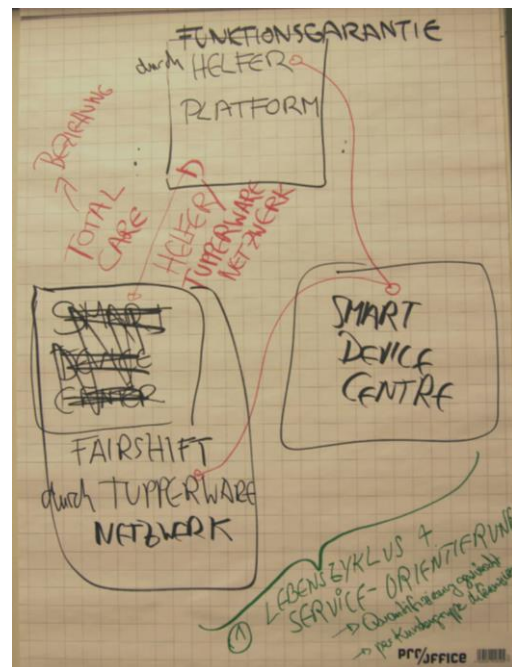 FUNKTIONSGARANTIE
durch HELFER
PLATFORM
→ BEZIEHUNG
TOTAL
CARE
HELFER/
TUPPERWARE
NETZWERK
SMART
DEVICE
CENTER
FAIRSHIFT
durch TUPPERWARE
NETZWERK
SMART
DEVICE
CENTRE
① LEBENSZYKLUS +
SERVICE-ORIENTIERUNG
→ Quantifizierung
→ pro Kundengruppe
PRO/OFFICE